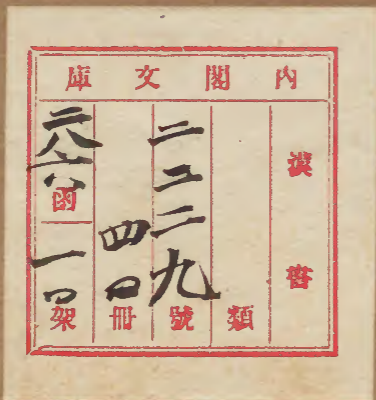 內閣文庫
漢書
類
二二二九號
四〇冊
二八六函
一〇架